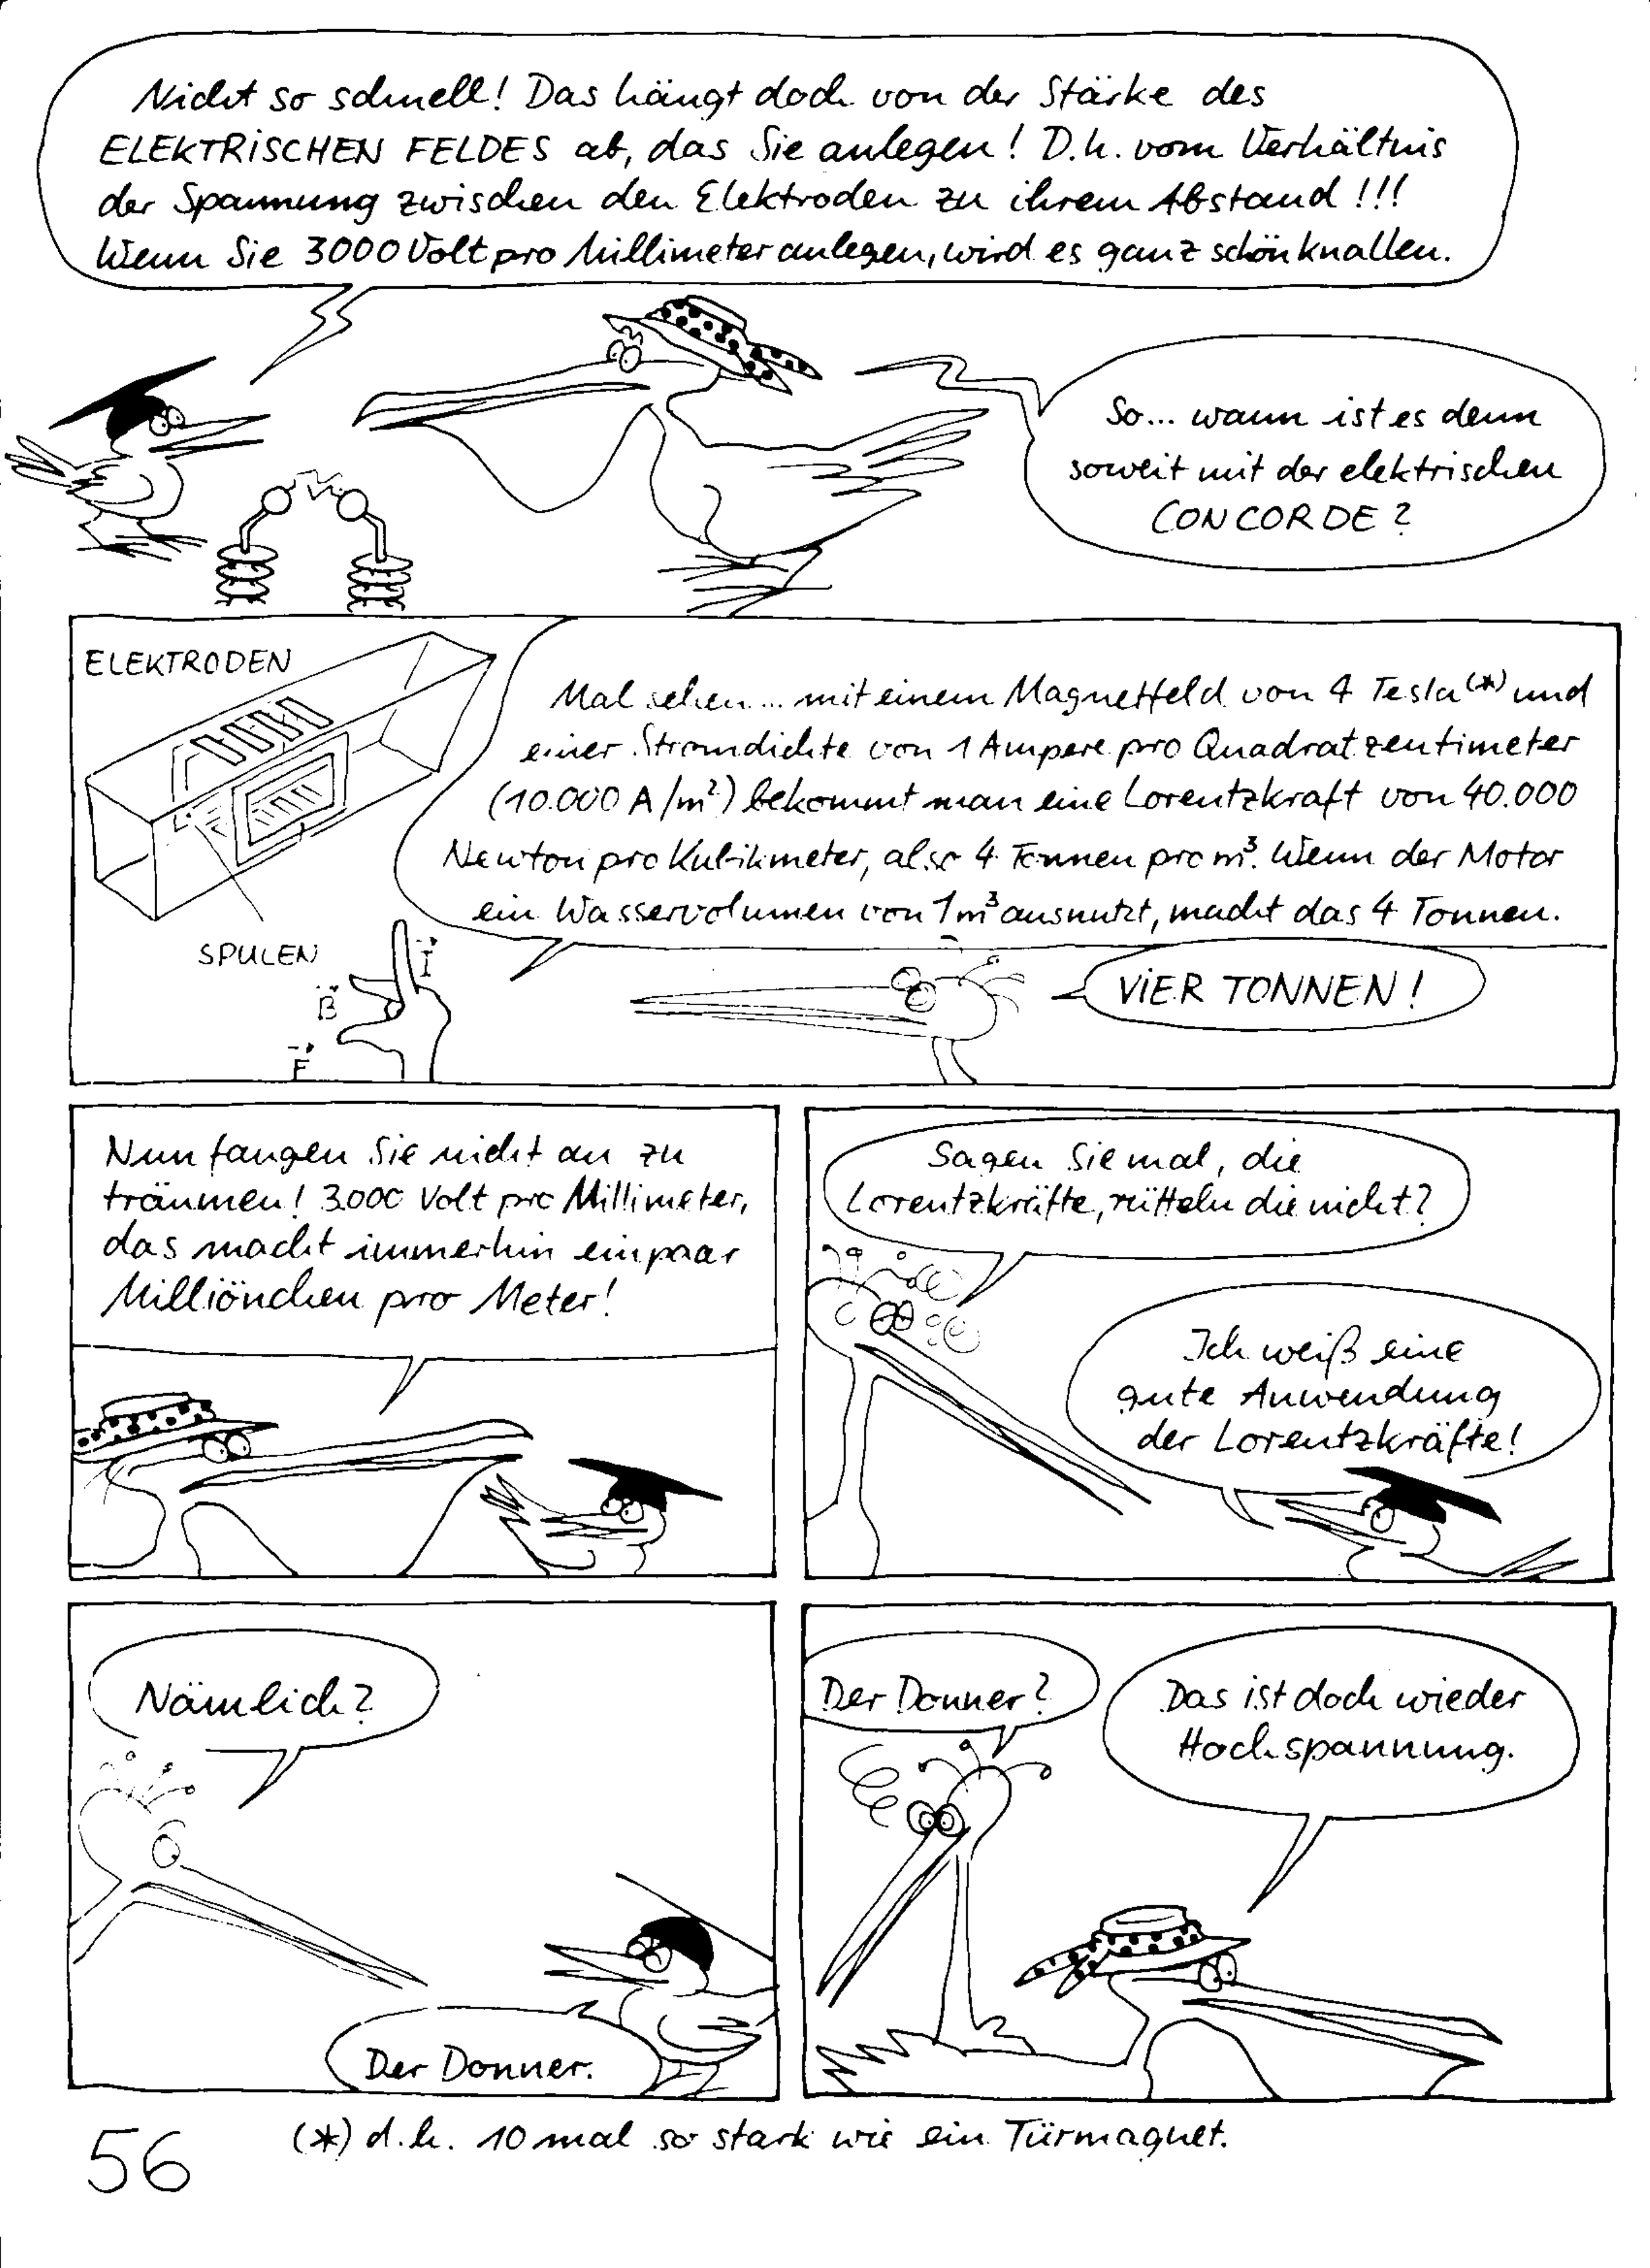 Nicht so schnell! Das hängt doch von der Stärke des
ELEKTRISCHEN FELDES ab, das Sie anlegen! D.h. vom Verhältnis
der Spannung zwischen den Elektroden zu ihrem Abstand!!!
Wenn Sie 3000 Volt pro Millimeter anlegen, wird es ganz schön knallen.
So... wann ist es denn
soweit mit der elektrischen
CONCORDE?
ELEKTRODEN
Mal sehen... mit einem Magnetfeld von 4 Tesla(*) und
einer Stromdichte von 1 Ampere pro Quadratzentimeter
(10.000 A/m²) bekommt man eine Lorentzkraft von 40.000
Newton pro Kubikmeter, also 4 Tonnen pro m³. Wenn der Motor
ein Wasservolumen von 1m³ ausnutzt, macht das 4 Tonnen.
SPULEN
I
B
F
VIER TONNEN!
Nun fangen Sie nicht an zu
träumen! 3000 Volt pro Millimeter,
das macht immerhin ein paar
Milliönchen pro Meter!
Sagen Sie mal, die
Lorentzkräfte, rütteln die nicht?
Ich weiß eine
gute Anwendung
der Lorentzkräfte!
Nämlich?
Der Donner.
Der Donner?
Das ist doch wieder
Hochspannung.
(*) d.h. 10 mal so stark wie ein Türmagnet.
56